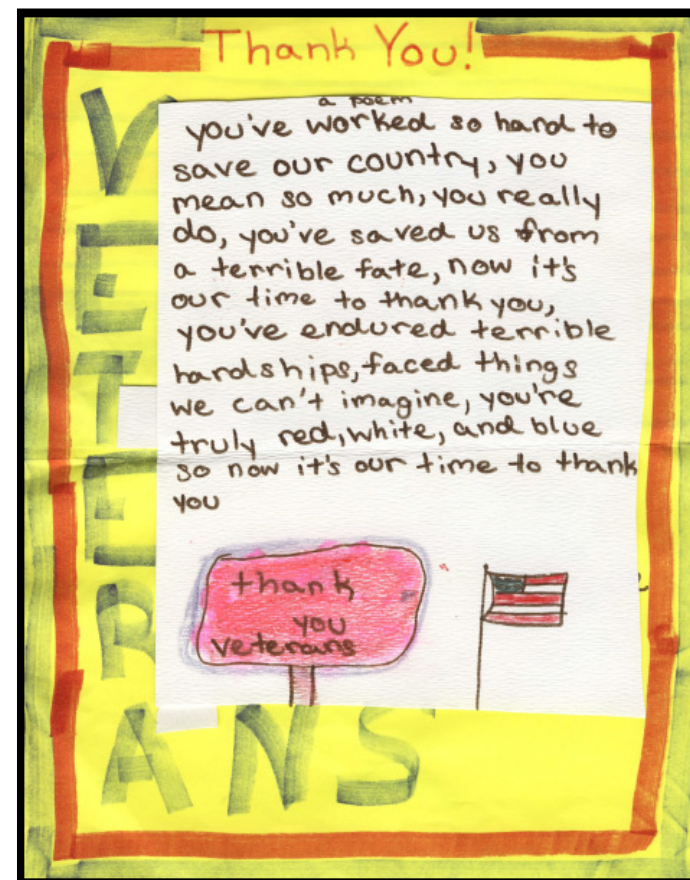 Thank You!
VETERANS
a poem
you've worked so hard to
save our country, you
mean so much, you really
do, you've saved us from
a terrible fate, now it's
our time to thank you,
you've endured terrible
hardships, faced things
we can't imagine, you're
truly red, white, and blue
so now it's our time to thank
you
thank
you
veterans